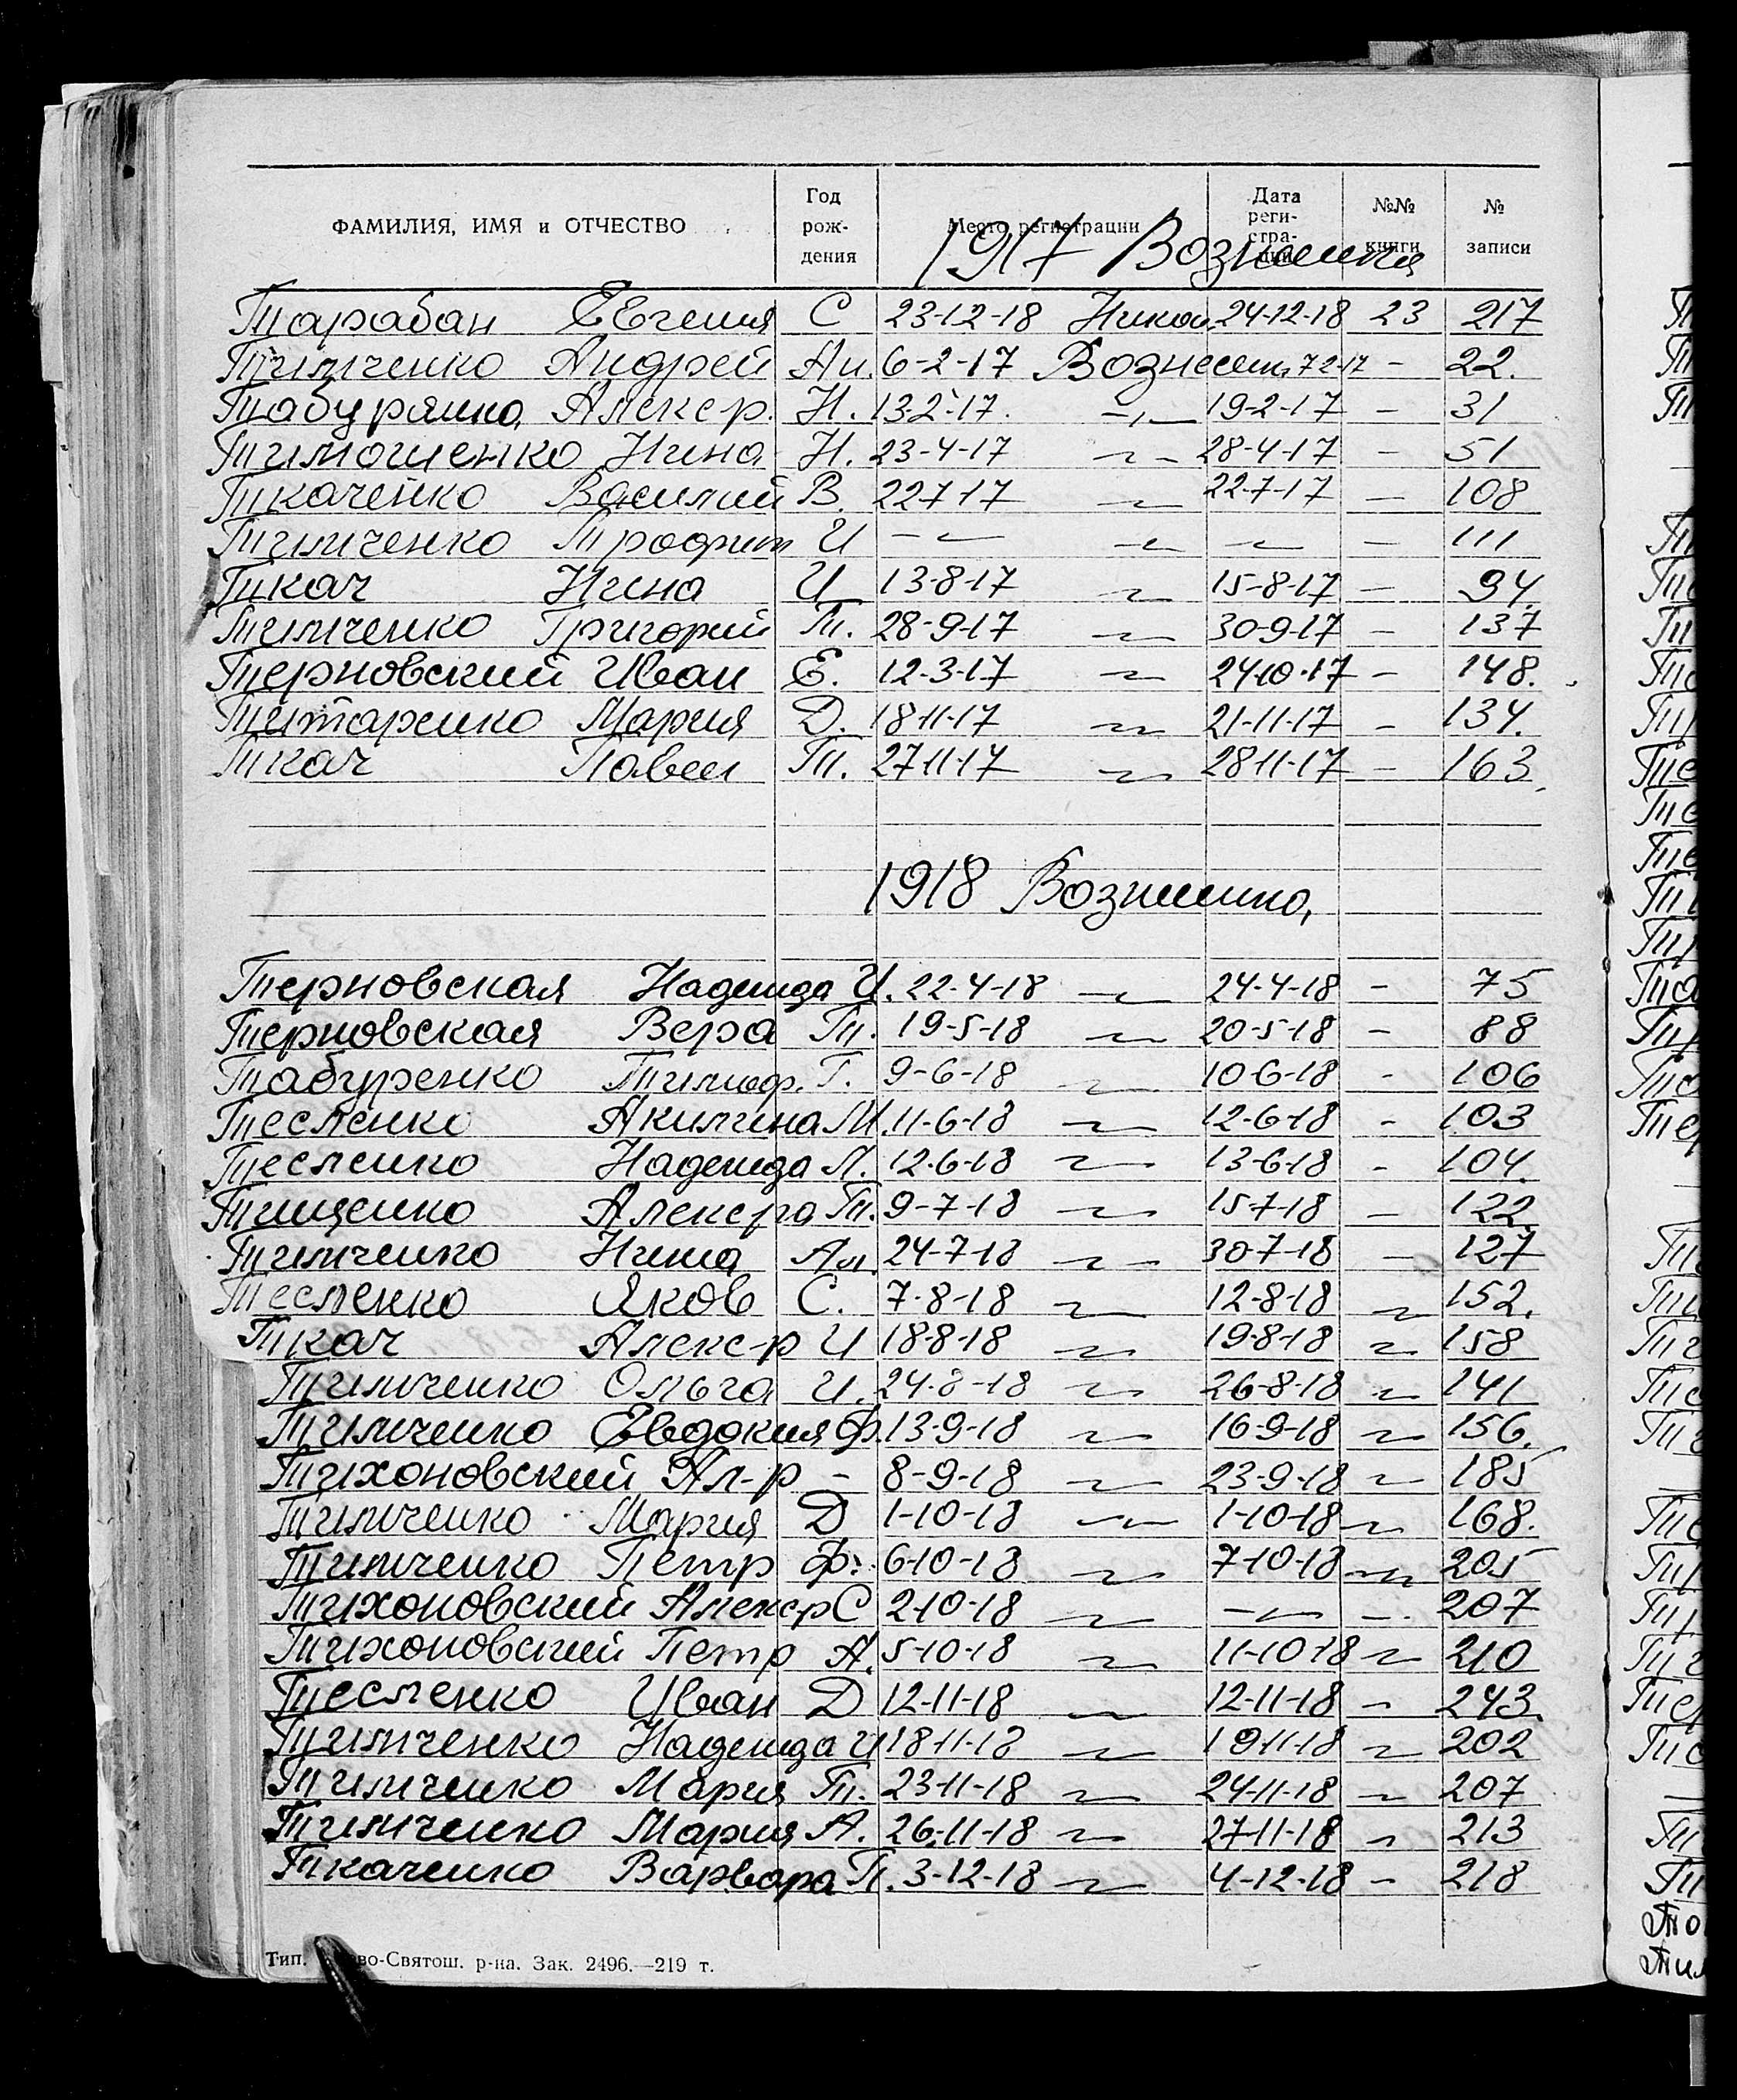 ФАМИЛИЯ, ИМЯ и ОТЧЕСТВО Год рож-дения Место регистрации Дата реги-стра-ции №№ книги № записи
1917
Тарабан Евгения С 23-12-18 Никол. 24-12-18 23 217
Тимченко Андрей Ан. 6-2-17 Вознесенк 7-2-17 - 22.
Алекср. Н. 13-2-17. -"- 19-2-17 - 31
Тимошенко Нина Н. 23-4-17 -"- 28-4-17 - 51
Ткаченко Василий В. 22 7 17 -"- 22-7-17 - 108
Тимченко Трофим И -"- -"- -"- - 111
Ткач Нина И 13-8-17 -"- 15-8-17 - 94.
Тимченко Григорий Т. 28-9-17 -"- 30-9-17 - 137
Терновский Иван Е. 12-3-17 -"- 24-10-17 - 148.
Титаренко Мария Д. 18-11-17 -"- 21-11-17 - 134.
Ткач Павел Т. 27-11-17 -"- 28-11-17 - 163.
1918
Терновская Надежда И. 22-4-18 -"- 24-4-18 - 75
Терновская Вера Т. 19-5-18 -"- 20-5-18 - 88
Табуренко Тимоф. Г. 9-6-18 -"- 10-6-18 - 106
Тесленко Акилина М. 11-6-18 -"- 12-6-18 - 103
Тесленко Надежда Л. 12-6-18 -"- 13-6-18 - 104.
Тищенко Алексра Т. 9-7-18 -"- 15-7-18 - 122.
Тимченко Нина Ал. 24-7-18 -"- 30-7-18 - 127
Тесленко Яков С. 7-8-18 -"- 12-8-18 -"- 152.
Ткач Алекс-р И 18-8-18 -"- 19-8-18 -"- 158
Тимченко Ольга И. 24-8-18 -"- 26-8-18 -"- 141
Тимченко Евдокия Ф. 13-9-18 -"- 16-9-18 -"- 156.
Тихоновский Ал-р - 8-9-18 -"- 23-9-18 -"- 185
Тимченко Мария Д 1-10-18 -"- 1-10-18 -"- 168.
Тимченко Петр Ф. 6-10-18 -"- 7-10-18 -"- 205
Тихоновский Алекср С 2-10-18 -"- -"- -. 207
Тихоновский Петр А. 5-10-18 -"- 11-10-18 -"- 210
Тесленко Иван Д 12-11-18 -"- 12-11-18 -"- 243.
Тимченко Надежда И 18-11-18 -"- 19-11-18 -"- 202
Тимченко Мария Т. 23-11-18 -"- 24-11-18 -"- 207
Тимченко Мария А. 26-11-18 -"- 27-11-18 -"- 213
Ткаченко Варвара П. 3-12-18 -"- 4-12-18 - 218
Тип. р-на. Зак. 2496.—219 т.